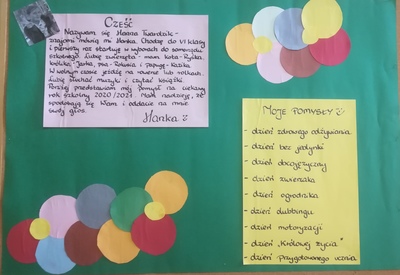 CZEŚĆ
Nazywam się Hanna Twardzik -
znajomi mówią mi Hanka. Chodzę do VI klasy
i pierwszy raz startuję w wyborach do samorządu
szkolnego. Lubię zwierzęta - mam kota - Ryśka,
królika - Jacka, psa - Rolusia i papugę - Kazika.
W wolnym czasie jeżdżę na rowerze lub rolkach.
Lubię słuchać muzyki i czytać książki.
Poniżej przedstawiam mój pomysł na ciekawy
rok szkolny 2020/2021. Mam nadzieję, że
spodobają się Wam i oddacie na mnie
swój głos.
Hanka
MOJE POMYSŁY
- dzień zdrowego odżywiania
- dzień bez jedynki
- dzień obcojęzyczny
- dzień zwierzaka
- dzień ogrodnika
- dzień dubbingu
- dzień motoryzacji
- dzień „Królowej życia"
- dzień przygotowanego ucznia